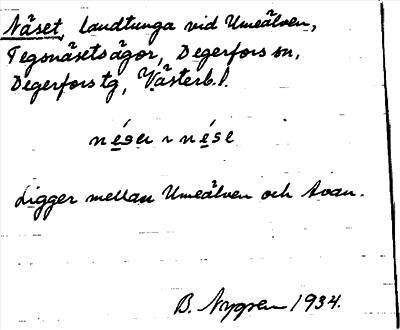 Näset, landtunga vid Umeälven,
Tegsnäsets ägor, Degerfors sn,
Degerfors tg, Västerb. l.
Ligger mellan Umeälven och Avan.
B. Nygren 1934.